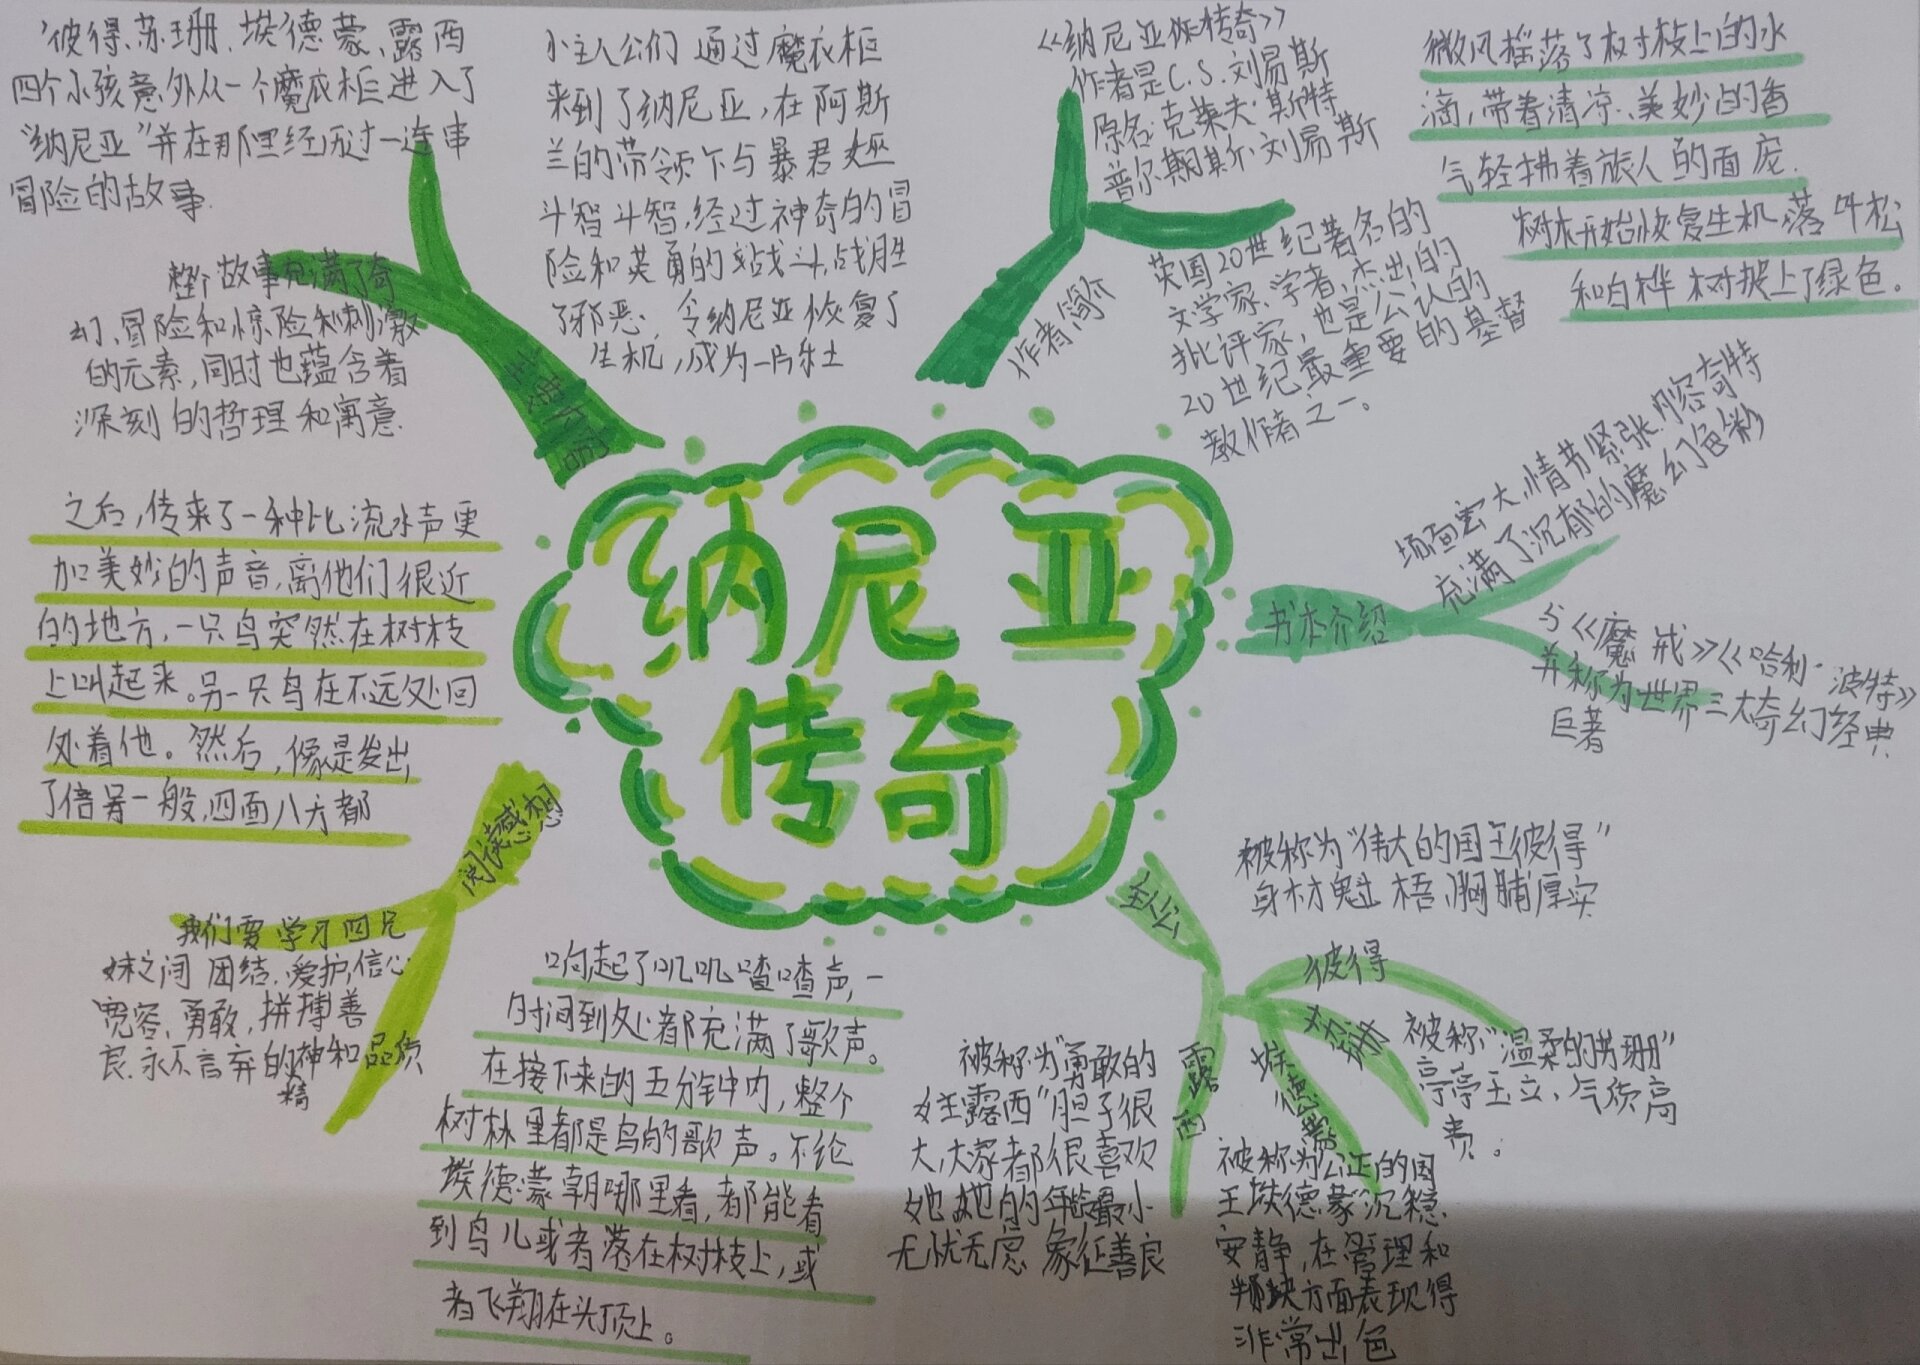 彼得、苏珊、埃德蒙、露西
四个小孩意外从一个魔衣柜进入了
“纳尼亚”并在那里经历过一连串
冒险的故事.
整个故事充满了奇
幻、冒险和惊险和刺激
的元素,同时也蕴含着
深刻的哲理和寓意.
主要内容
小主人公们通过魔衣柜
来到了纳尼亚,在阿斯
兰的带领下与暴君女巫
斗智斗智,经过神奇的冒
险和英勇的战斗,战胜
了邪恶,令纳尼亚恢复了
生机,成为一片乐土
《纳尼亚传奇》
作者是C.S.刘易斯
原名:克莱夫·斯特
普尔斯·刘易斯
作者简介
英国20世纪著名的
文学家、学者,杰出的
批评家,也是公认的
20世纪最重要的基督
教作者之一。
微风摇落了树枝上的水
滴,带着清凉、美妙的香
气轻拂着旅人的面庞.
树木开始恢复生机,落叶松
和白桦树披上了绿色.
书本介绍
场面宏大,情节紧张,内容奇特
充满了沉郁的魔幻色彩
与《魔戒》《哈利·波特》
并称为世界三大奇幻经典
巨著
纳尼亚
传奇
之后,传来了一种比流水声更
加美妙的声音,离他们很近
的地方,一只鸟突然在树枝
上叫起来。另一只鸟在不远处回
处着他。然后,像是发出
了信号一般,四面八方都
响起了叽叽喳喳声,一
时间到处都充满了歌声。
在接下来的五分钟内,整个
树林里都是鸟的歌声。不论
埃德蒙朝哪里看,都能看
到鸟儿或者落在树枝上,或
者飞翔在头顶上。
阅读感想
我们要学习四兄
妹之间团结、爱护,信心
宽容、勇敢,拼搏善
良.永不言弃的神和品质
精
主人公
彼得
被称为“伟大的国王彼得”
身材魁梧,胸脯厚实
苏珊
被称“温柔的苏珊”
亭亭玉立、气质高
贵。
埃德蒙
被称为公正的国
王埃德蒙沉稳.
安静,在管理和
判决方面表现得
非常出色
露西
被称为“勇敢的
女王露西”胆子很
大,大家都很喜欢
她她的年龄最小
无忧无虑 象征善良